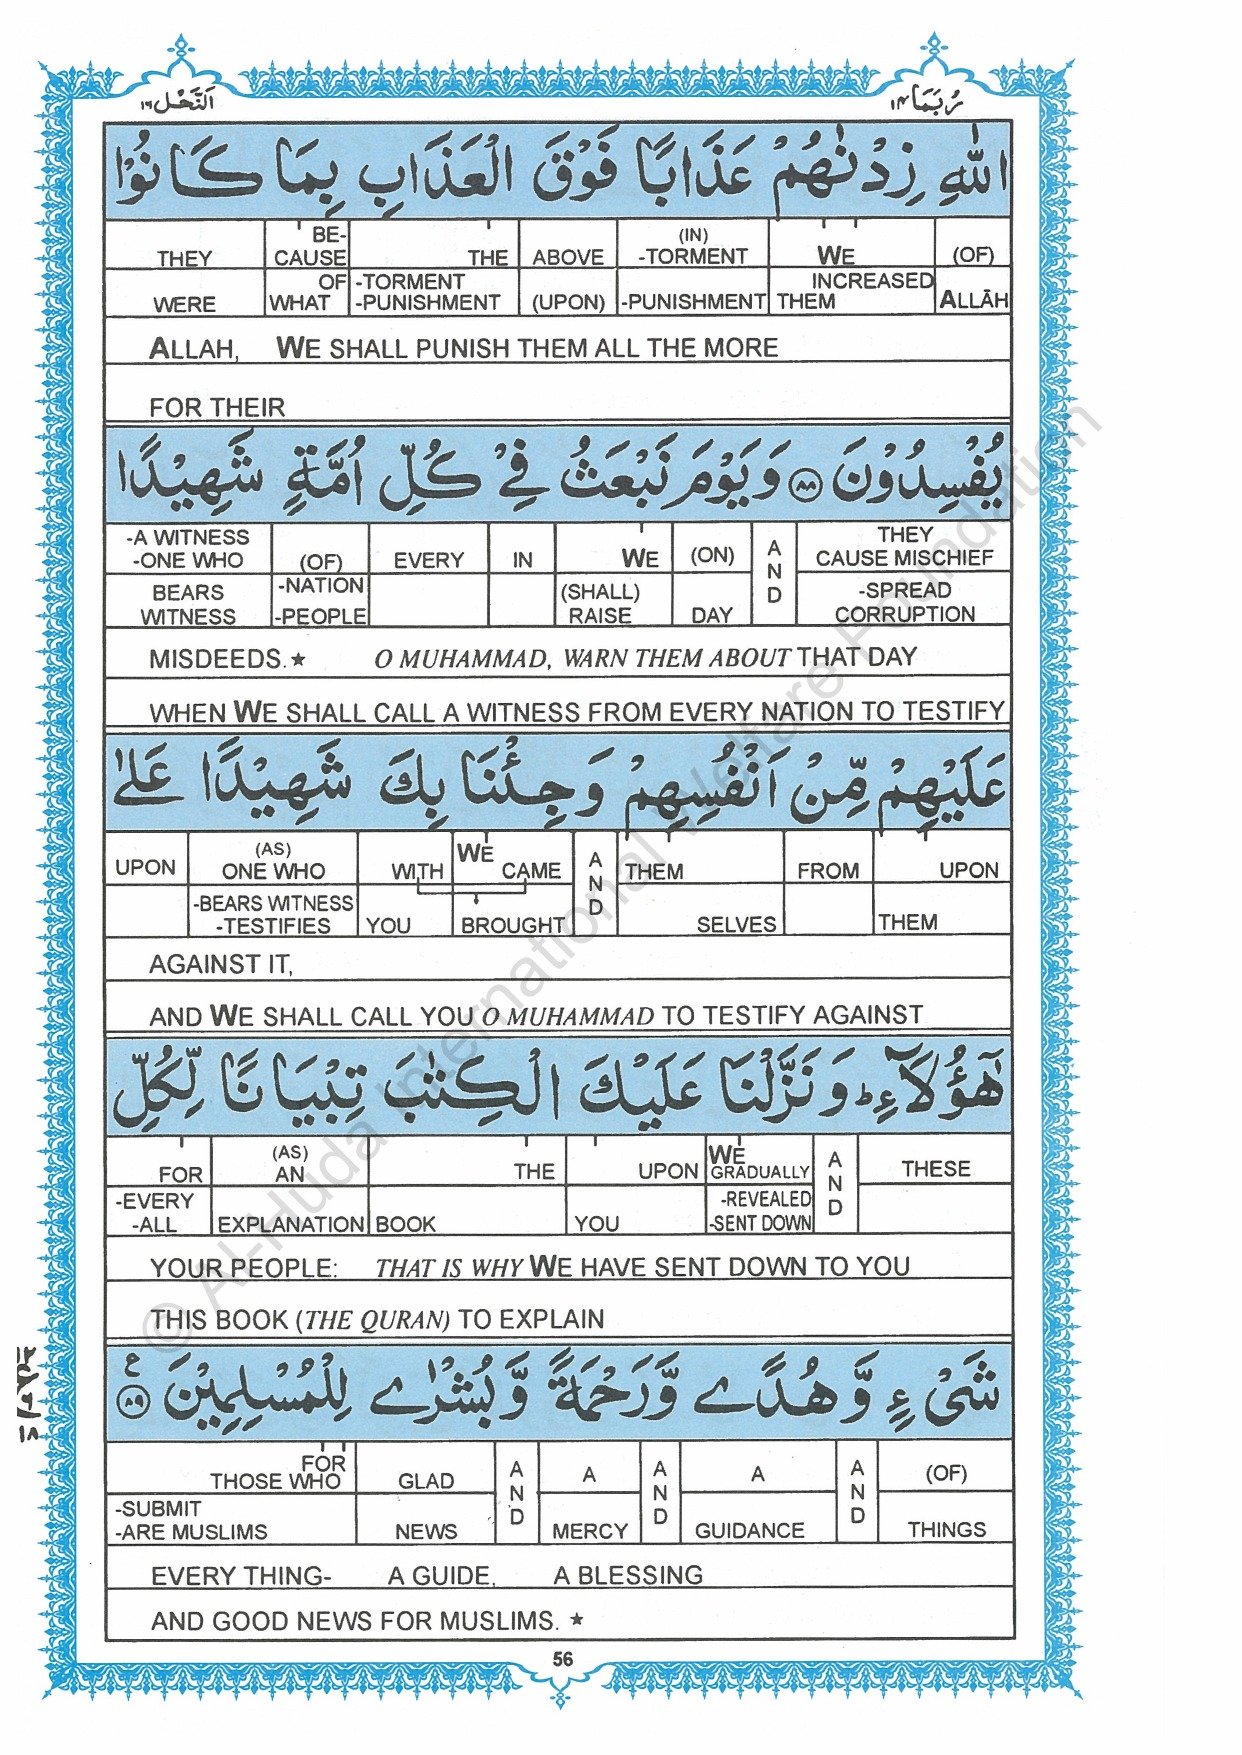 رُبَمَا ١٤
اَلنَّحْل ١٦
اللّٰهِ زِدْنٰهُمْ عَذَابًا فَوْقَ الْعَذَابِ بِمَا كَانُوْا
THEY BE- THE ABOVE (IN) WE (OF)
CAUSE -TORMENT
WERE OF -TORMENT (UPON) -PUNISHMENT INCREASED ALLĀH
WHAT -PUNISHMENT THEM
ALLAH, WE SHALL PUNISH THEM ALL THE MORE
FOR THEIR
يُفْسِدُوْنَ ﴿٨٨﴾ وَيَوْمَ نَبْعَثُ فِيْ كُلِّ اُمَّةٍ شَهِيْدًا
-A WITNESS (OF) EVERY IN WE (ON) AND THEY
-ONE WHO CAUSE MISCHIEF
BEARS -NATION (SHALL) DAY -SPREAD
WITNESS -PEOPLE RAISE CORRUPTION
MISDEEDS.★ O MUHAMMAD, WARN THEM ABOUT THAT DAY
WHEN WE SHALL CALL A WITNESS FROM EVERY NATION TO TESTIFY
عَلَيْهِمْ مِّنْ اَنْفُسِهِمْ وَجِئْنَا بِكَ شَهِيْدًا عَلٰى
UPON (AS) WITH WE AND THEM FROM UPON
ONE WHO CAME
-BEARS WITNESS YOU BROUGHT SELVES THEM
-TESTIFIES
AGAINST IT,
AND WE SHALL CALL YOU O MUHAMMAD TO TESTIFY AGAINST
هٰٓؤُلَآءِ ؕ وَنَزَّلْنَا عَلَيْكَ الْكِتٰبَ تِبْيَانًا لِّكُلِّ
FOR (AS) THE UPON WE AND THESE
AN GRADUALLY
-EVERY EXPLANATION BOOK YOU -REVEALED
-ALL -SENT DOWN
YOUR PEOPLE: THAT IS WHY WE HAVE SENT DOWN TO YOU
THIS BOOK (THE QURAN) TO EXPLAIN
شَيْءٍ وَّهُدًى وَّرَحْمَةً وَّبُشْرٰى لِلْمُسْلِمِيْنَ ﴿٨٩﴾ ع
FOR GLAD AND A AND A AND (OF)
THOSE WHO
-SUBMIT NEWS MERCY GUIDANCE THINGS
-ARE MUSLIMS
EVERY THING- A GUIDE, A BLESSING
AND GOOD NEWS FOR MUSLIMS. ★
56
© Al-Huda International Welfare Foundation